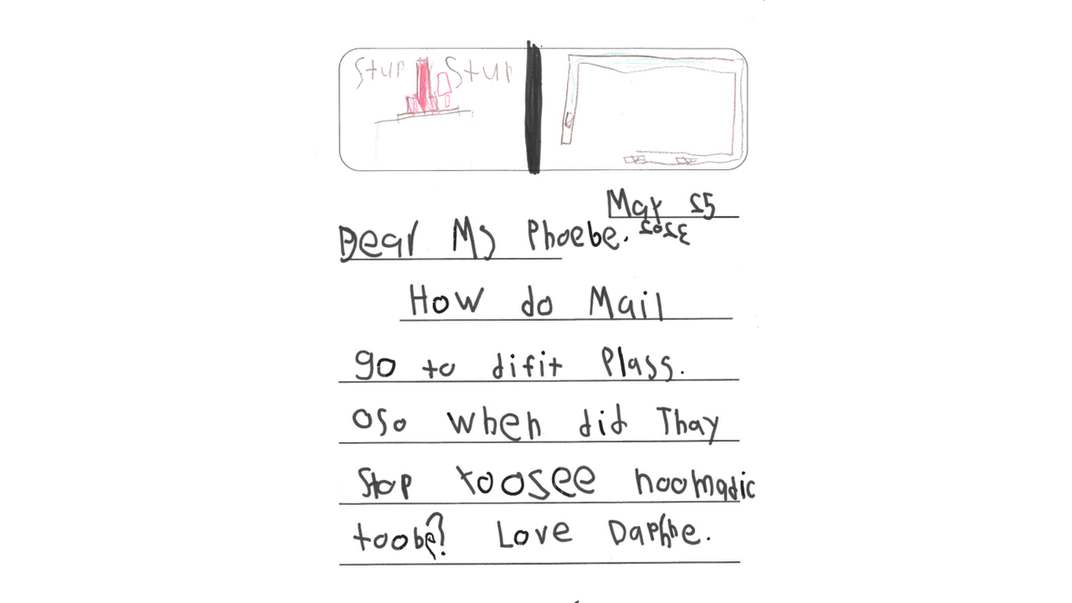 Stur Stur
May 25
2023
Dear Ms Phoebe.
How do Mail
go to difit Plass.
oso when did Thay
Stop toosee noomadic
toobe? Love Daphne.